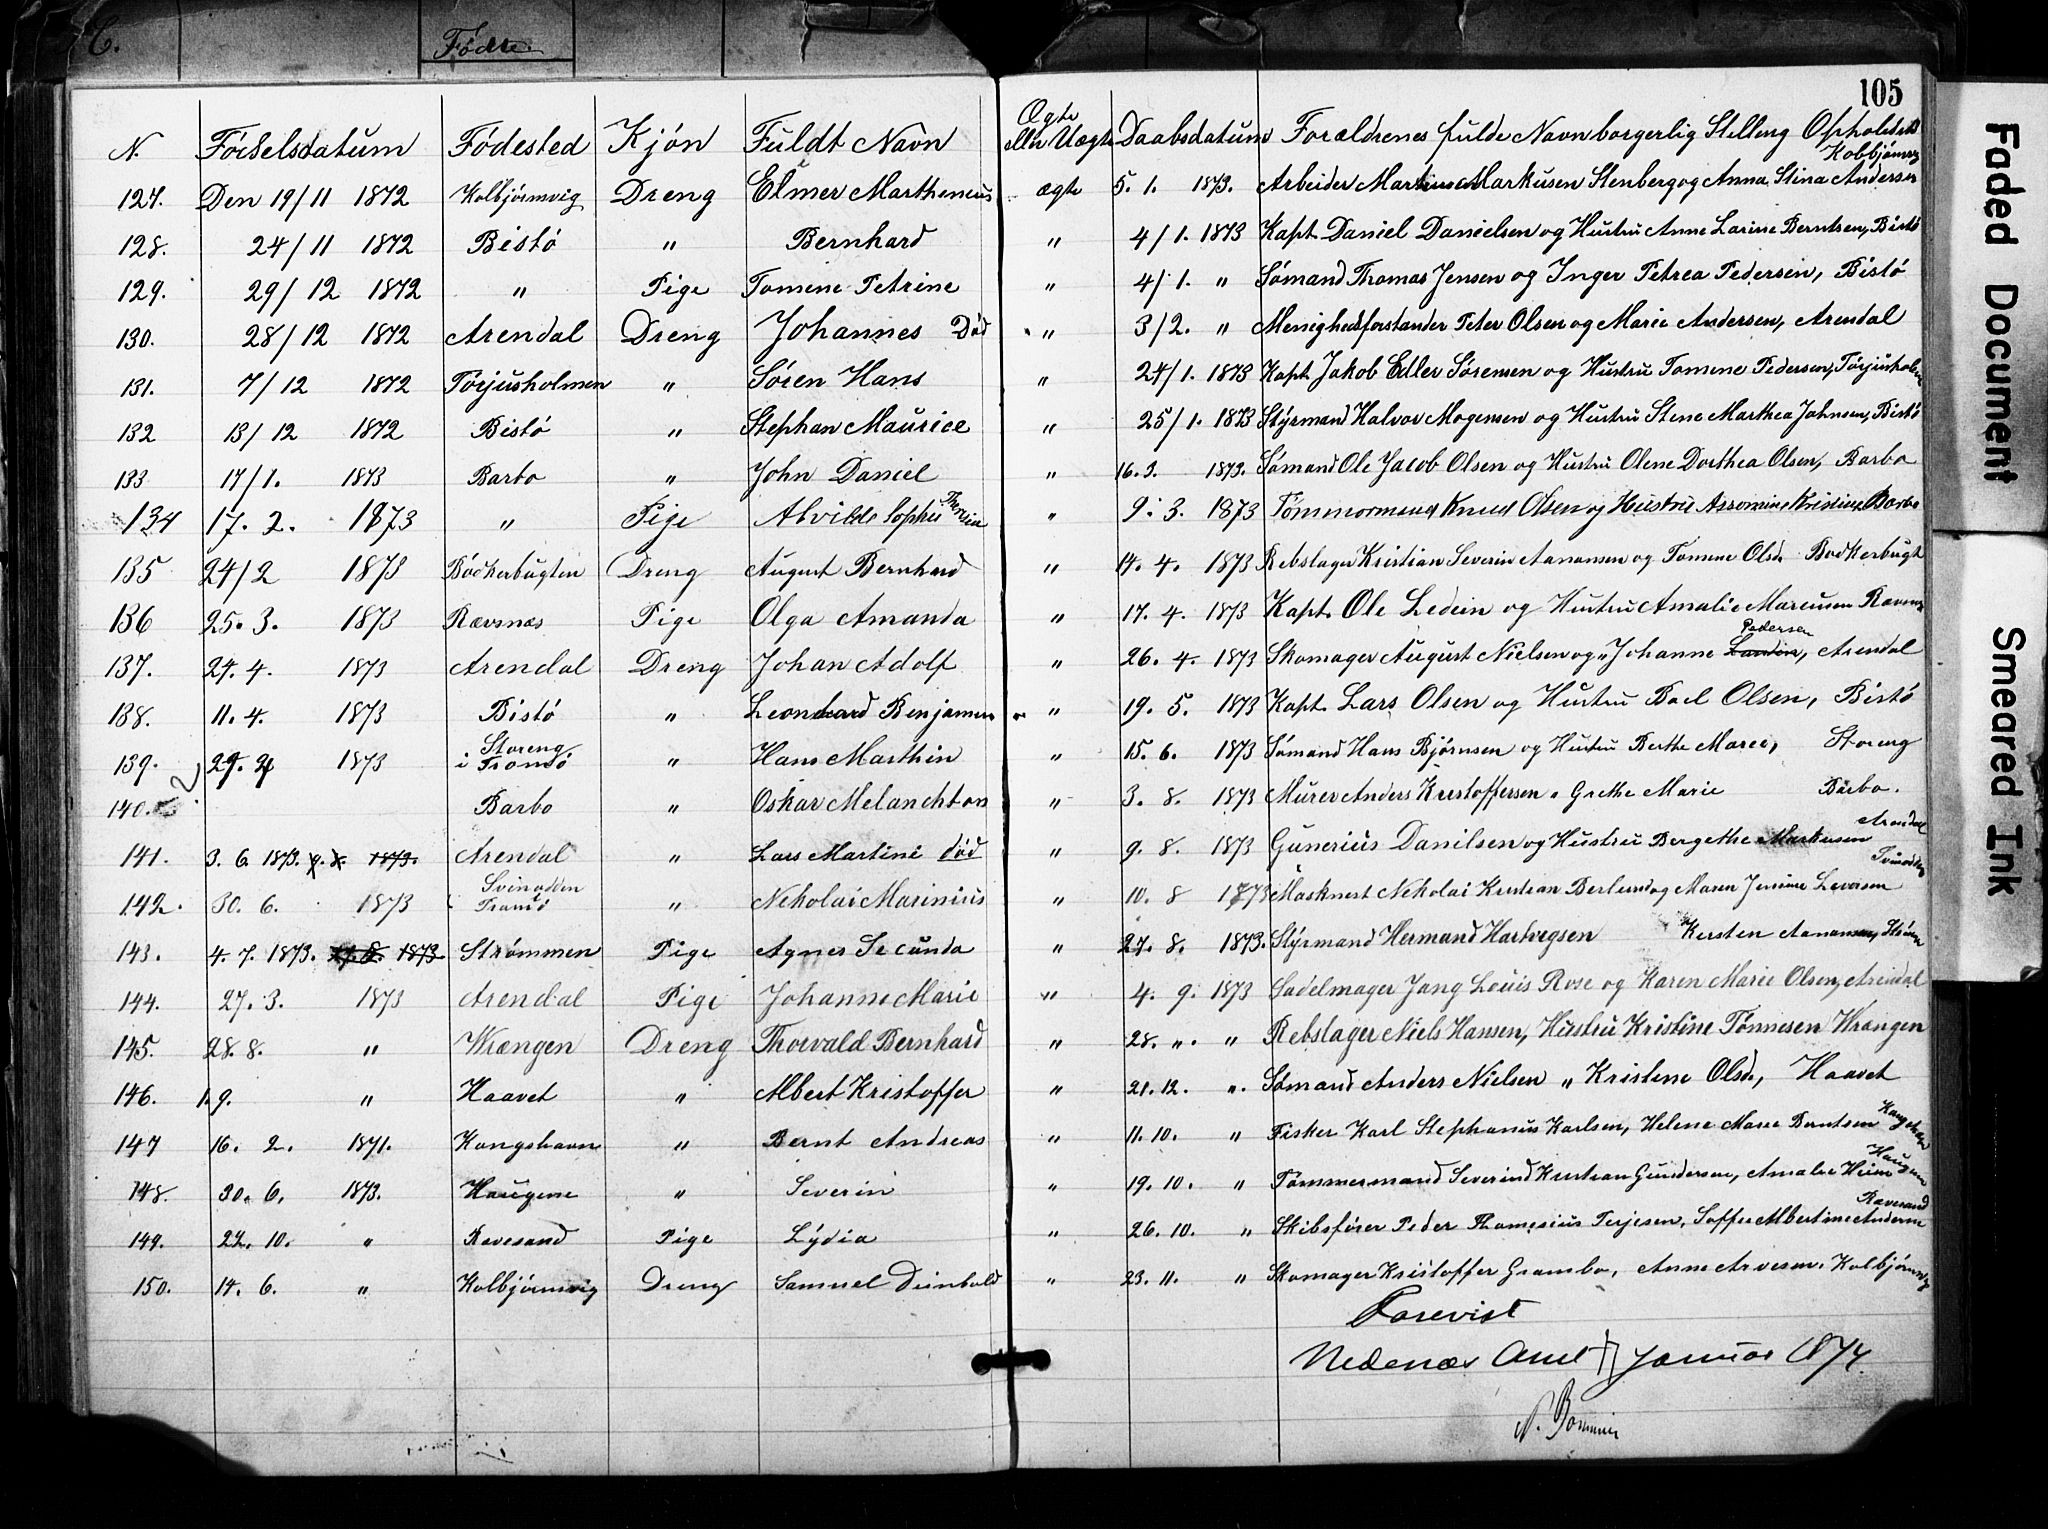 C. Fødte.
105
N. Fødselsdatum Fødested Kjön Fuldt Navn Ægte eller Uægte Daabsdatum Forældrenes fulde Navn borgerlig Stilling Opholdsted
127. Den 19/11 1872 Kolbjörnsvig Dreng Elmer Marthenius ægte 5. 1. 1873. Arbeider Markusen Stenberg og Anna Stina Andersen Kobbjörnsvig
128. 24/11 1872 Bistö " Bernhard " 4/1. 1873 Kapt. Daniel Danielsen og Hustru Anne Larine Berntsen, Bistö
129. 29/12 1872 " Pige Tomene Petrine " 4/1. " Sömand Thomas Jensen og Inger Petrea Pedersen, Bistö
130. 28/12 1872 Arendal Dreng Johannes Död " 3/2. " Menighedsforstander Peter Olsen og Marie Andersen, Arendal
131. 7/12 1872 Törjusholmen " Sören Hans " 24/1. 1873 Kapt. Jakob Edler Sörensen og Hustru Tomene Pedersen, Törjusholm
132 13/12 1872 Bistö " Stephan Maurice " 25/1. 1873 Styrmand Halvor Mogensen og Hustru Stene Marthea Johnsen, Bistö
133 17/1. 1873 Barbo " John Daniel " 16. 3. 1873. Sömand Ole Jacob Olsen og Hustru Olene Dorthea Olsen, Barbo
134 17. 2. 1873 " Pige Alvilde Sophie " 9. 3. 1873 Tömmermand Knud Olsen og Hustru Kristine, Barbo
135 24/2 1873 Bödkerbugten Dreng August Bernhard " 14. 4. 1873 Rebslager Kristian Severin Aanonsen og Tomine Olsd. Bodkerbugt
136 25. 3. 1873 Rævsnæs Pige Olga Amanda " 17. 4. 1873 Kapt. Ole Ledein og Hustru Amalie Marcusen
137. 24. 4. 1873 Arendal Dreng Johan Adolf " 26. 4. 1873 Skomager August Nielsen og " Johanne Pedersen, Arendal
138. 11. 4. 1873 Bistö " Leonhard Benjamin " 19. 5. 1873 Kapt. Lars Olsen og Hustru Boel Olsen, Bistö
139. 29. 1873 Storeng i Tromö " Hans Marthin " 15. 6. 1873 Sömand Hans Björnsen og Hustru Berthe Marie, Storeng
140. Barbo " Oskar Melanchton " 3. 8. 1873 Murer Anders Kristoffersen " Grethe Marie Barbo.
141. 3. 6. 1873. 9. 8. 1873. Arendal " Lars Martini död " 9. 8. 1873 Gunerius Danilsen og Hustru Bergethe Markusen Arendal
142. 30. 6. 1873 Svinodden Tromö " Nekolai Marinius " 10. 8 1773 Nekolai Kristian Berlund og Maren Jensine Leversen Svinodden
143. 4. 7. 1873. 1873. Strömmen Pige Agnes Secunda " 27. 8. 1873. Styrmand Hermand Hartvegsen Kersten Aanonsen,
144. 27. 3. 1873 Arendal Pige Johanne Marie " 4. 9. 1873 Sadelmager Jang Louis Rose og Karen Marie Olsen, Arendal
145. 28. 8. " Wrængen Dreng Thorvald Bernhard " 28. ". " Rebslager Niels Hansen, Hustru Kristine Tönnesen Wrængen
146. 1. 9. " Haavet " Albert Kristoffer " 21. 12. ". Sömand Anders Nielsen " Kristine Olsd., Haavet
147 16. 2. 1871. Kongshavn " Bernt Andreas " 11. 10. " Fisker Karl Stephanus Karlsen, Helene Marie Berntsen
148. 30. 6. 1873. Haugene " Severin " 19. 10. " Tömmermand Severind Kristian Gundersen, Amalie Heim Haugene
149. 22. 10. " Ravesand Pige Lydia " 26. 10. " Skibsförer Peder Thomesius Terjesen, Soffie Albertine Andersen Ravesand
150. 14. 6. " Kolbjörnsvig Dreng Samuel " 23. 11. " Skomager Kristoffer Grambo, Anne Arvesen. Kolbjörnsvig
Forevist
Nedenæs Amt Januar 1874.
Faded Document
Smeared Ink